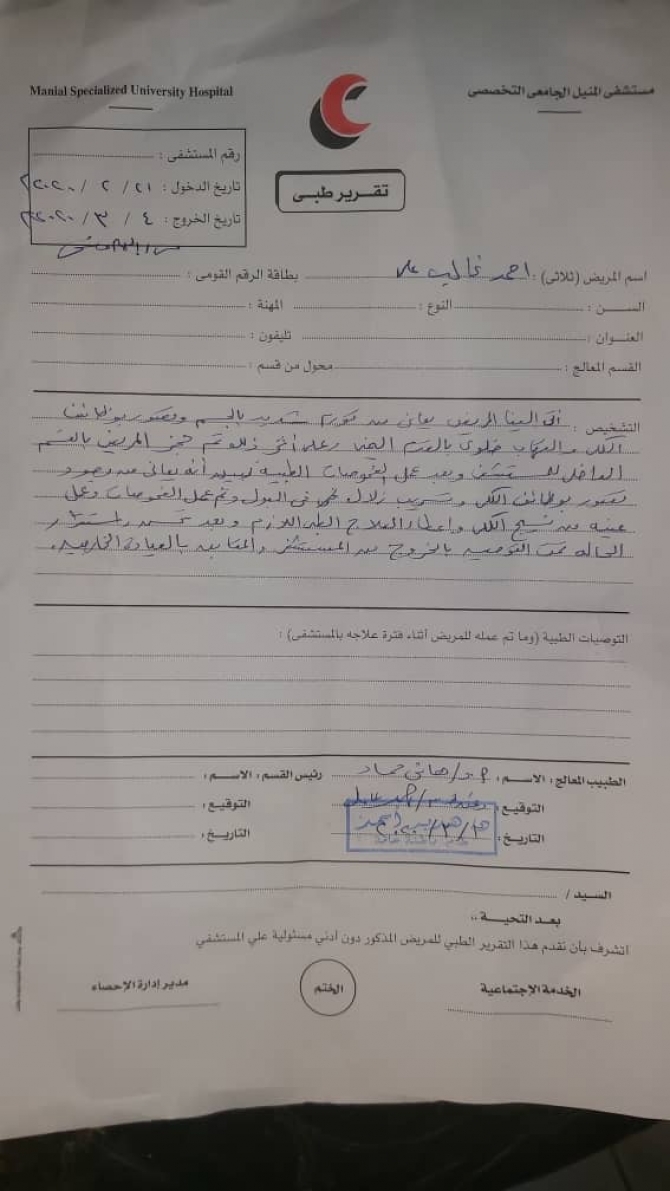 Manial Specialized University Hospital
مستشفى المنيل الجامعى التخصصى
رقم المستشفى :
تاريخ الدخول : ٢١ / ٢ / ٢٠٢٠
تاريخ الخروج : ٤ / ٣ / ٢٠٢٠
تقرير طبى
اسم المريض (ثلاثى) : احمد غالب على
بطاقة الرقم القومى :
الســـن :
النوع :
المهنة :
العنـــوان :
تليفون :
القسم المعالج :
محول من قسم :
التشخيص : أتى الينا المريض يعانى من تورم شديد بالجسم وقصور بوظائف
الكلى والتهاب خلوى بالقدم اليمنى وعلى أثر ذلك تم حجز المريض بالقسم
الداخلى للمستشفى وبعد عمل الفحوصات الطبية تبين أنه يعانى من وجود
قصور بوظائف الكلى وتسريب زلال فى البول وتم عمل الفحوصات وعمل
عينه من نسيج الكلى وإعطاء العلاج الطبى اللازم وبعد تحسن واستقرار
الحاله تمت التوصيه بالخروج من المستشفى والمتابعه بالعيادة الخارجيه.
التوصيات الطبية (وما تم عمله للمريض أثناء فترة علاجه بالمستشفى) :
الطبيب المعالج : الاســم : أ.د/ هانى حماد
رئيس القسم : الاســم :
التوقيع :
التوقيع :
التاريخ :
التاريخ :
السيد /
بعـد التحيـــة ،،
اتشرف بأن نقدم هذا التقرير الطبي للمريض المذكور دون أدني مسئولية علي المستشفي
الخدمة الإجتماعية
الختم
مدير إدارة الإحصاء